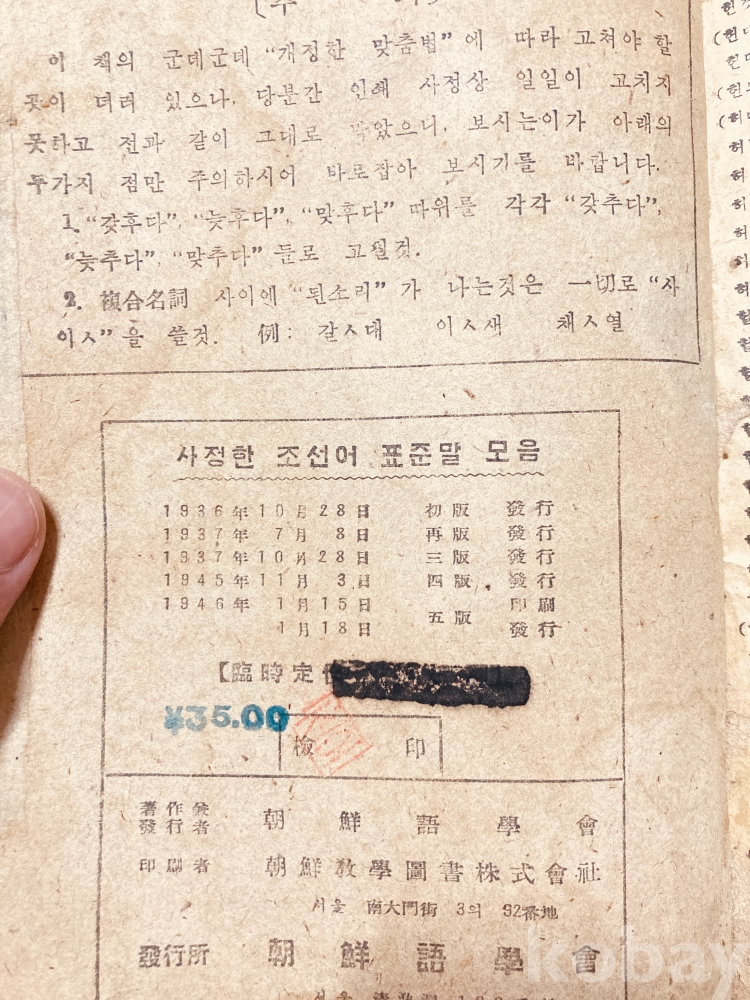 이 책의 군데군데 “개정한 맞춤법” 에 따라 고쳐야 할
곳이 더러 있으나, 당분간 인쇄 사정상 일일이 고치지
못하고 전과 같이 그대로 박았으니, 보시는이가 아래의
두가지 점만 주의하시어 바로잡아 보시기를 바랍니다.
1. “갖후다”, “늦후다”, “맞후다” 따위를 각각 “갖추다”,
“늦추다”, “맞추다” 들로 고칠것.
2. 複合名詞 사이에 “된소리” 가 나는것은 一切로 “사
이ㅅ” 을 쓸것. 例: 갈ㅅ대 이ㅅ새 채ㅅ열
사정한 조선어 표준말 모음
1936年 10月 28日 初版 發行
1937年 7月 8日 再版 發行
1937年 10月 28日 三版 發行
1945年 11月 3日 四版 發行
1946年 1月 15日 五版 印刷
1月 18日 發行
【臨時定
¥35.00
檢印
著作兼
發行者 朝鮮語學會
印刷者 朝鮮敎學圖書株式會社
서울 南大門街 3의 92番地
發行所 朝鮮語學會
서울
kobay